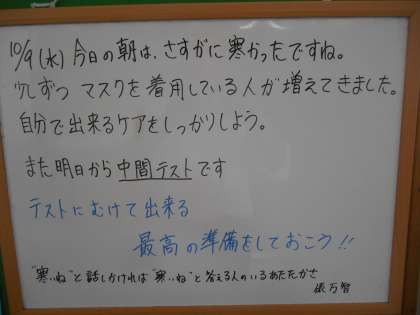 10/9(水) 今日の朝は、さすがに寒かったですね。
少しずつ マスクを着用している人が増えてきました。
自分で出来るケアをしっかりしよう。
また明日から中間テストです
テストにむけて出来る
最高の準備をしておこう!!
"寒いね"と話しかければ"寒いね"と答える人のいるあたたかさ
俵万智